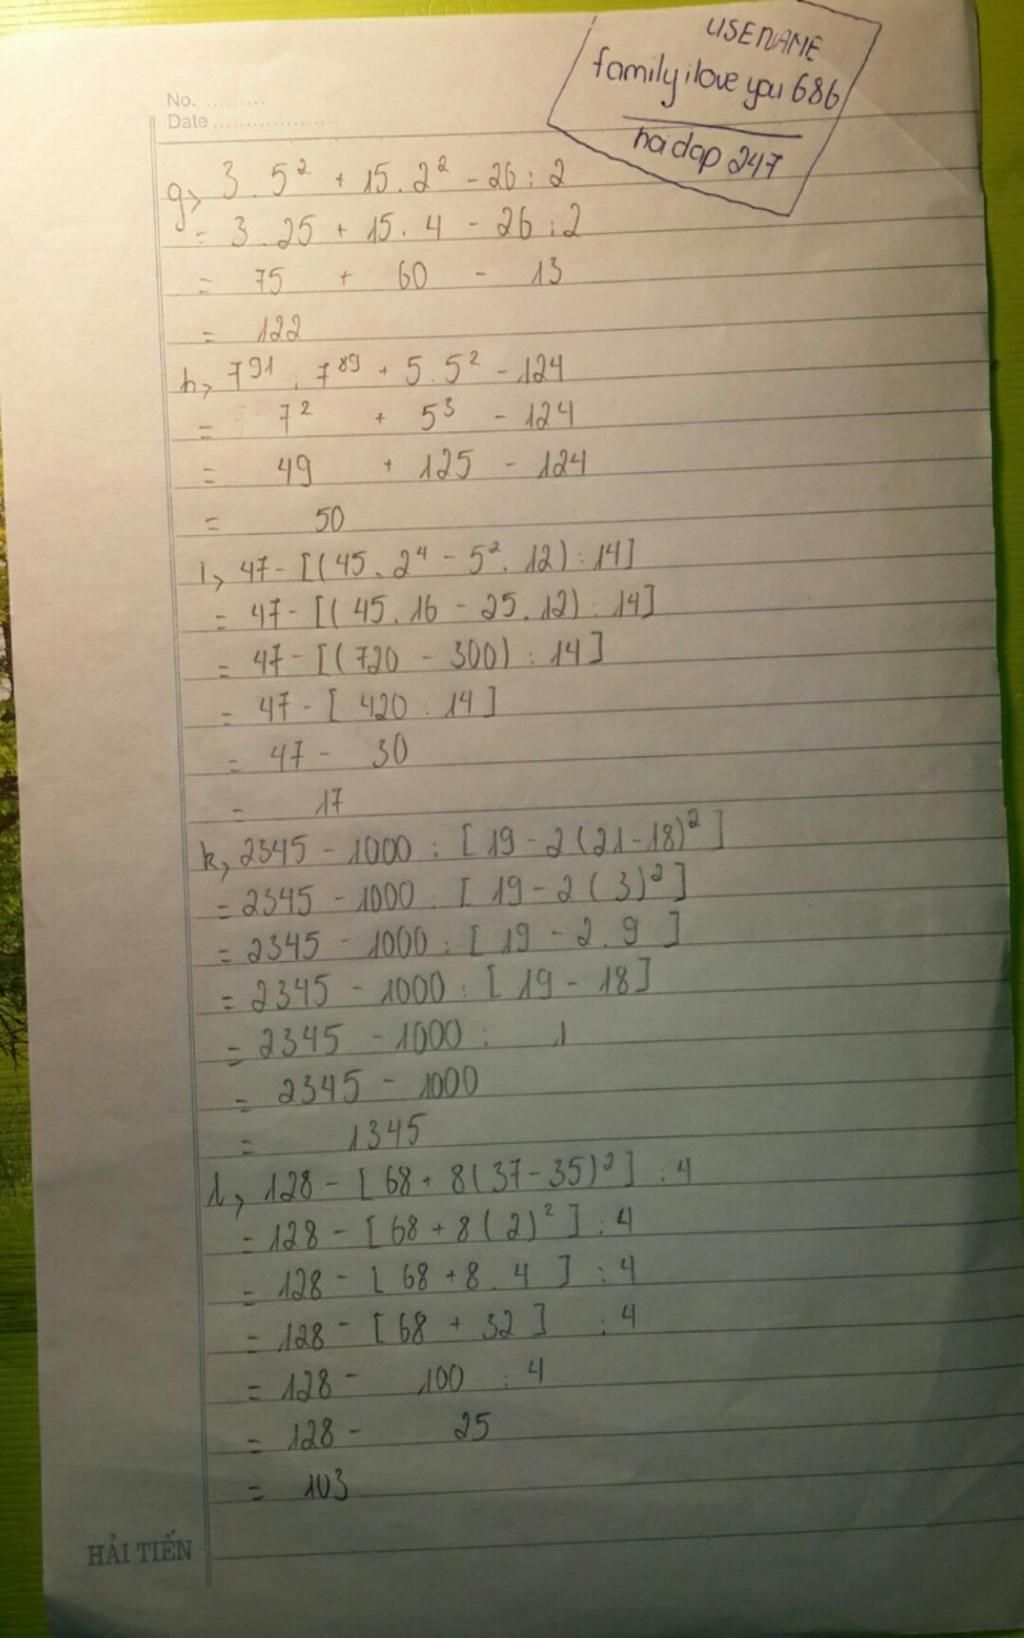 USENAME
familyiloveyou686
hoidap 247
No. ..........
Date ....................
g, 3 . 5² + 15 . 2² - 26 : 2
= 3 . 25 + 15 . 4 - 26 : 2
= 75 + 60 - 13
= 122
h, 7⁹¹ : 7⁸⁹ + 5 . 5² - 124
= 7² + 5³ - 124
= 49 + 125 - 124
= 50
i, 47 - [(45 . 2⁴ - 5² . 12) : 14]
= 47 - [(45 . 16 - 25 . 12) : 14]
= 47 - [(720 - 300) : 14]
= 47 - [420 : 14]
= 47 - 30
= 17
k, 2345 - 1000 : [19 - 2(21 - 18)²]
= 2345 - 1000 : [19 - 2(3)²]
= 2345 - 1000 : [19 - 2 . 9]
= 2345 - 1000 : [19 - 18]
= 2345 - 1000 : 1
= 2345 - 1000
= 1345
l, 128 - [68 + 8(37 - 35)²] : 4
= 128 - [68 + 8(2)²] : 4
= 128 - [68 + 8 . 4] : 4
= 128 - [68 + 32] : 4
= 128 - 100 : 4
= 128 - 25
= 103
HẢI TIẾN